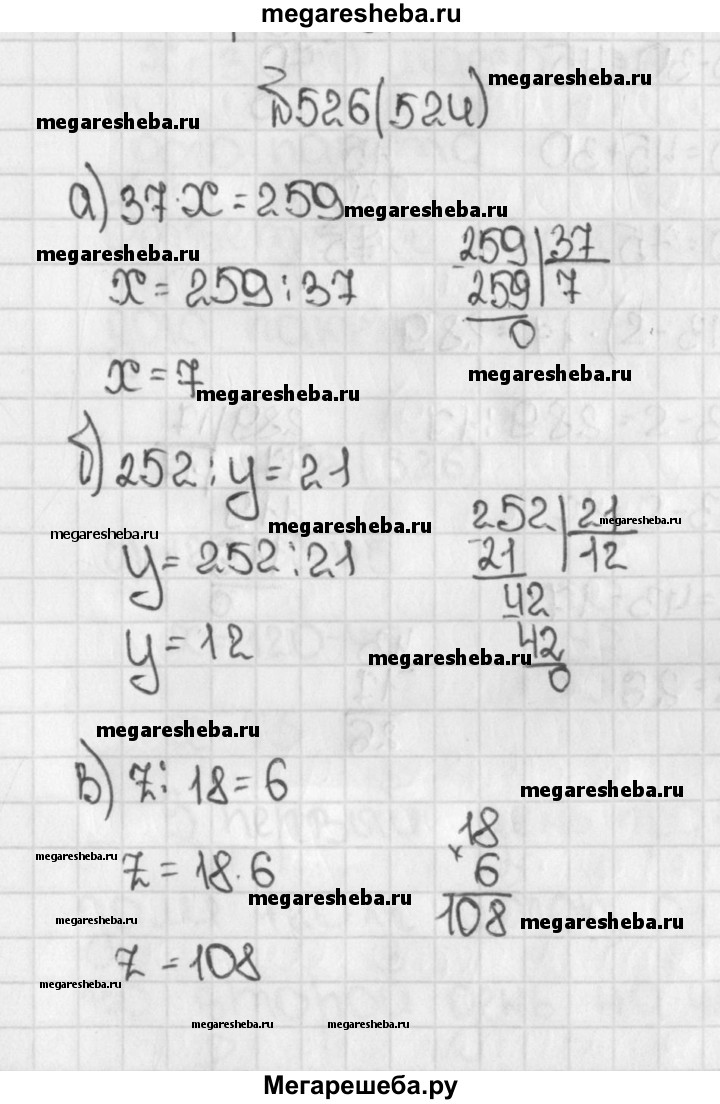 megaresheba.ru
№526(524)
megaresheba.ru
megaresheba.ru
а) 37·x=259
megaresheba.ru
megaresheba.ru
x=259:37
259|37
-259|7
0
x=7
megaresheba.ru
megaresheba.ru
б) 252:y=21
megaresheba.ru
megaresheba.ru
megaresheba.ru
y=252:21
252|21
-21|12
42
-42
0
y=12
megaresheba.ru
megaresheba.ru
в) z:18=6
megaresheba.ru
megaresheba.ru
z=18·6
18
×6
108
megaresheba.ru
megaresheba.ru
megaresheba.ru
z=108
megaresheba.ru
megaresheba.ru
megaresheba.ru
Мегарешеба.ру